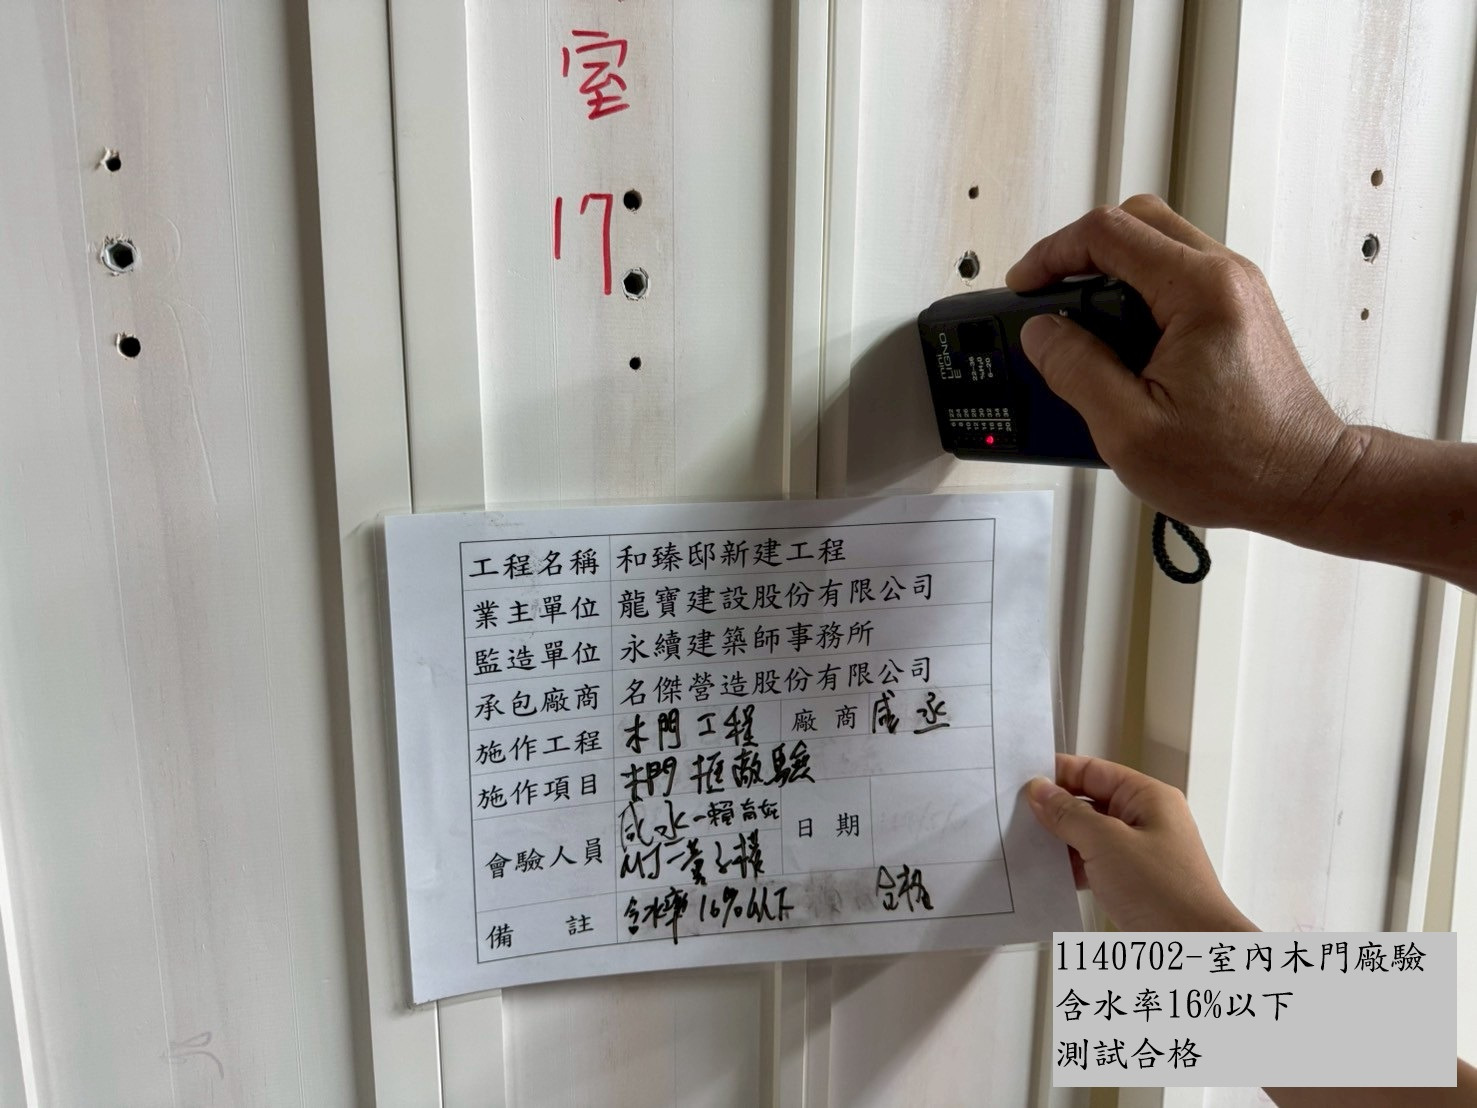 室
17
mini
LIGNO
E
22-36
%H₂O
6-20
6 22
8 24
10 26
12 28
14 30
16 32
18 34
20 36
工程名稱 和臻邸新建工程
業主單位 龍寶建設股份有限公司
監造單位 永續建築師事務所
承包廠商 名傑營造股份有限公司
施作工程 木門工程 廠商 成丞
施作項目 木門框廠驗
會驗人員 日期
備註 含水率16%以下 合格
1140702-室內木門廠驗
含水率16%以下
測試合格